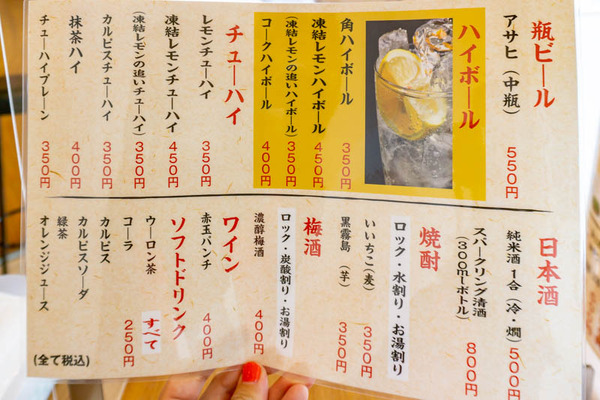 瓶ビール
アサヒ（中瓶） 550円
ハイボール
角ハイボール 350円
凍結レモンハイボール 450円
（凍結レモンの追いハイボール） 350円
コークハイボール 400円
チューハイ
レモンチューハイ 350円
凍結レモンチューハイ 450円
（凍結レモンの追いチューハイ） 350円
カルピスチューハイ 350円
抹茶ハイ 400円
チューハイプレーン 350円
日本酒
純米酒 1合（冷・燗） 500円
スパークリング清酒
（300mlボトル） 800円
焼酎
ロック・水割り・お湯割り
いいちこ（麦） 350円
黒霧島（芋） 350円
梅酒
ロック・炭酸割り・お湯割り
濃醇梅酒 400円
ワイン
赤玉パンチ 400円
ソフトドリンク
すべて
250円
ウーロン茶
コーラ
カルピス
カルピスソーダ
緑茶
オレンジジュース
(全て税込)